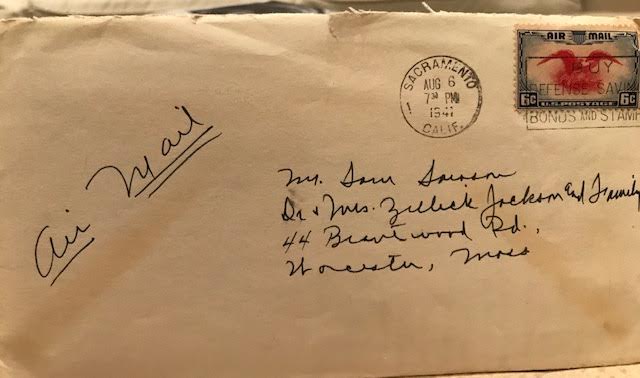 SACRAMENTO
AUG 6
7 30 PM
1941
CALIF.
1
AIR MAIL
6¢ 6¢
U.S. POSTAGE
BUY
DEFENSE SAVIN
BONDS AND STAMP
Air Mail
Mr. Sam
Dr & Mrs. Zellick Jackson and Family
44 Brantwood Rd.,
Worcester, Mass